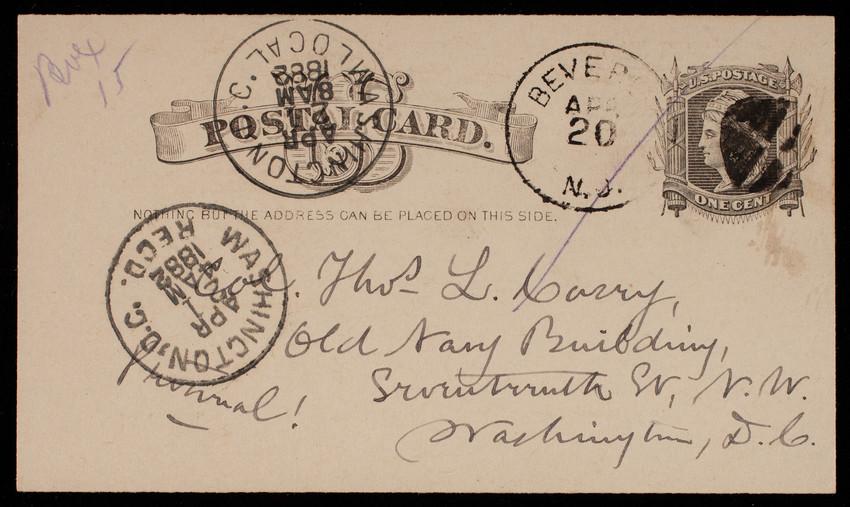 Box
15
POSTAL CARD.
U.S. POSTAGE
ONE CENT
WASHINGTON D.C.
APR
8 AM
1882
LOCAL
BEVER
APR
20
N.J.
NOTHING BUT THE ADDRESS CAN BE PLACED ON THIS SIDE.
WASHINGTON, D.C.
APR
AM
1882
RECD.
Col. Thos L. Casey,
Old Navy Building,
Seventeenth St, N.W.
Washington, D.C.
Personal!